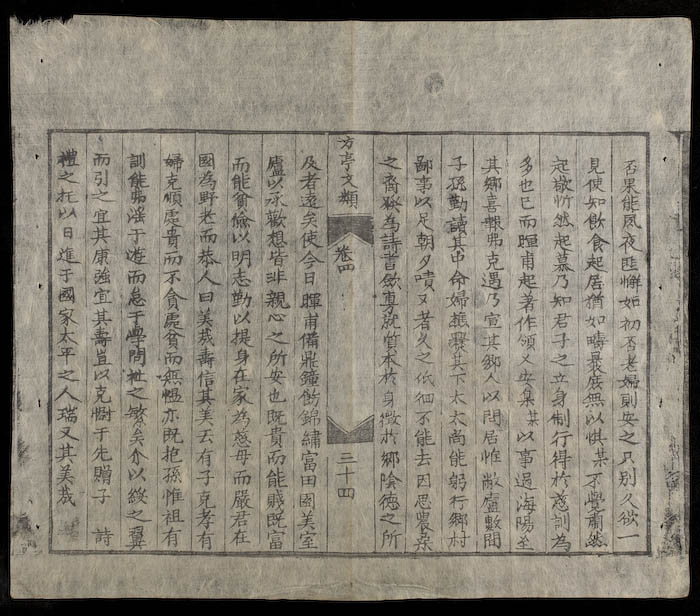 否果能夙夜匪懈如初否老婦則安之只別久欲一
見使知飲食起居猶如疇曩庶無以惧某不覺肅然
起欲忻然起慕乃知君子之立身制行得於慈訓為
多也已而暉甫起著作領文安集某以事過海陽至
其鄉喜報弗克遇乃宣其鄉人以問居惟敝廬數間
子孫勤讀其中命婦樵爨其下太太尚能躬行鄉村
鄙事以足朝夕嘖又者久之低徊不能去因思農桒
之裔務為詩書欲專就質本於身徵於鄉陰德之所
方亭文類
卷四
三十四
及者遠矣使今日暉甫備鼎鐘飭錦繡富田園美室
廬以承歡想皆非親心之所安也既貴而能賤既富
而能貧儉以明志勤以提身在家為慈母而嚴君在
國為野老而恭人曰美哉壽信其美云有子克孝有
婦克順處貴而不貪處貧而無慍亦既抱孫惟祖有
訓能弗滛于遊而怠于學問祉之繁矣介以綏之翼
而引之宜其康強宜其壽豈以克酧于先贈子 詩
禮之托以日進于國家太平之人瑞又其美哉